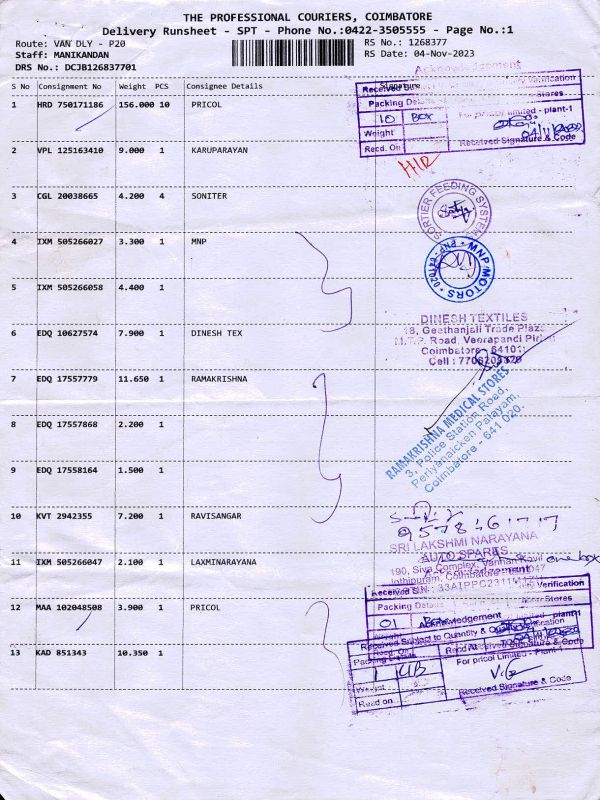 THE PROFESSIONAL COURIERS, COIMBATORE
Delivery Runsheet - SPT - Phone No.:0422-3505555 - Page No.:1
Route: VAN DLY - P20
RS No.: 1268377
Staff: MANIKANDAN
RS Date: 04-Nov-2023
DRS No.: DCJB126837701
Acknowledgement
S No Consignment No Weight PCS Consignee Details Signature
Received
Verification
Stores
1 HRD 750171186 156.000 10 PRICOL
Packing Details
For pricol limited - plant-1
10 BOX
Weight
Recd. On
Received Signature & Code
HR
2 VPL 125163410 9.000 1 KARUPARAYAN
3 CGL 20038665 4.200 4 SONITER
SORTIER FEEDING SYSTEM
4 IXM 505266027 3.300 1 MNP
MNP MOTORS
5 IXM 505266058 4.400 1
6 EDQ 10627574 7.900 1 DINESH TEX
DINESH TEXTILES
18, Geethanjali Trade Plaza
M.T.P. Road, Veerapandi
Coimbatore
Cell :
7 EDQ 17557779 11.650 1 RAMAKRISHNA
RAMAKRISHNA MEDICAL STORES
3, Police Station Road,
Periyanaicken Palayam,
Coimbatore - 641 020.
8 EDQ 17557868 2.200 1
9 EDQ 17558164 1.500 1
10 KVT 2942355 7.200 1 RAVISANGAR
11 IXM 505266047 2.100 1 LAXMINARAYANA
SRI LAKSHMI NARAYANA
AUTO SPARES
190, Siva Complex,
Coimbatore
one box
12 MAA 102048508 3.900 1 PRICOL
Verification
Packing Details
Stores
01 Box
Acknowledgement
plant-1
Received Subject to Quantity & Quality Verification
13 KAD 851343 10.350 1
Packing Details
For pricol Limited - Plant-1
1
Weight
Read on
Received Signature & Code